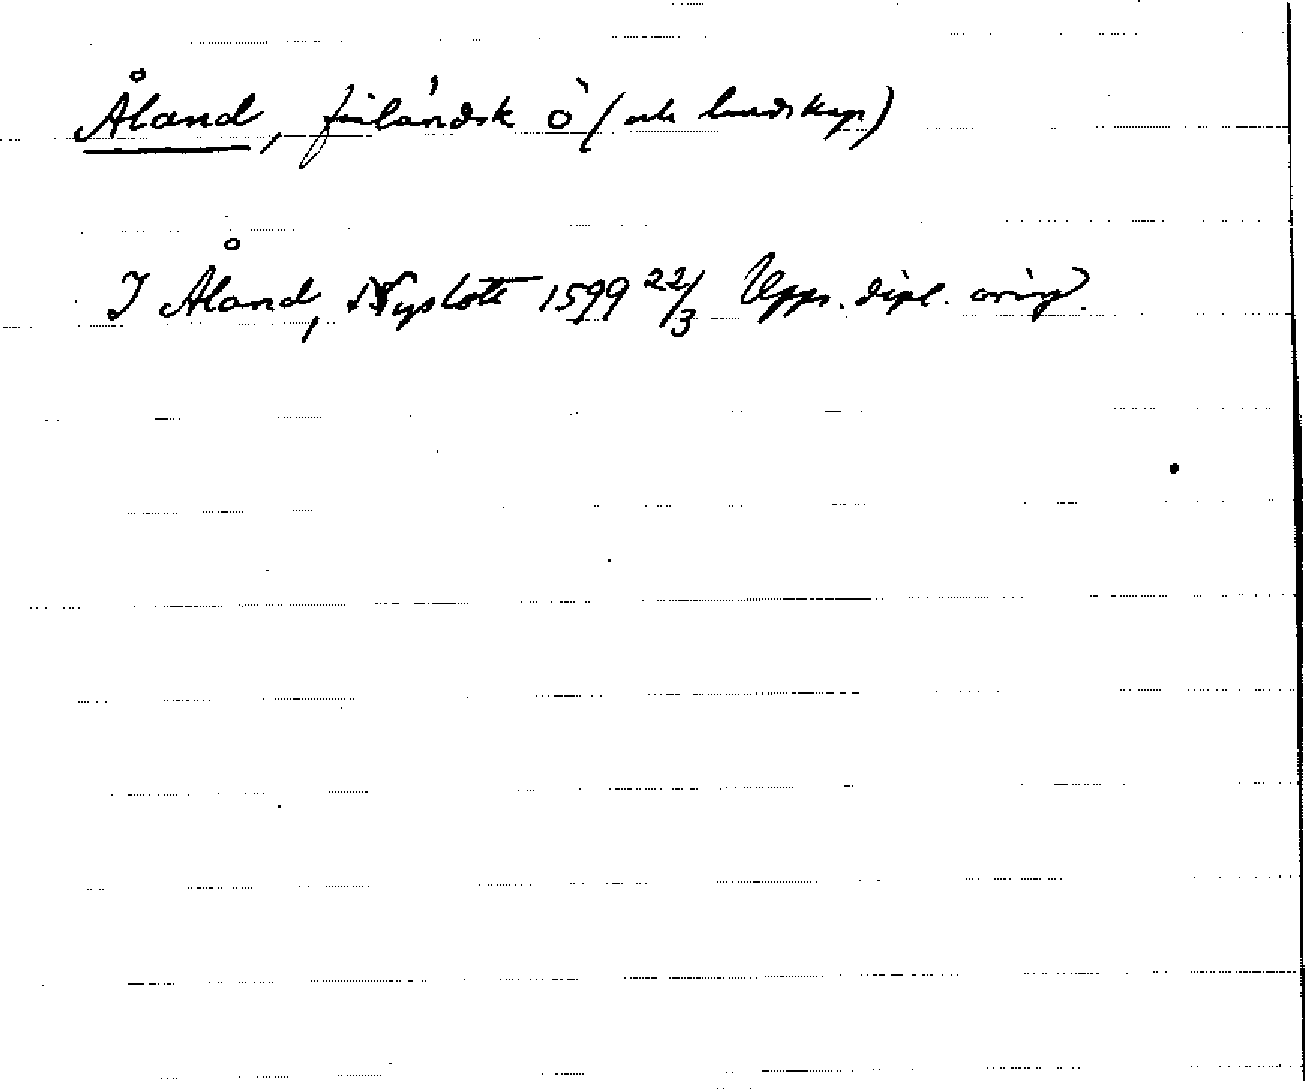 Åland, finländsk ö (och landskap)
I Åland, Nyslott 1599 22/3 Upps. dipl. orig.